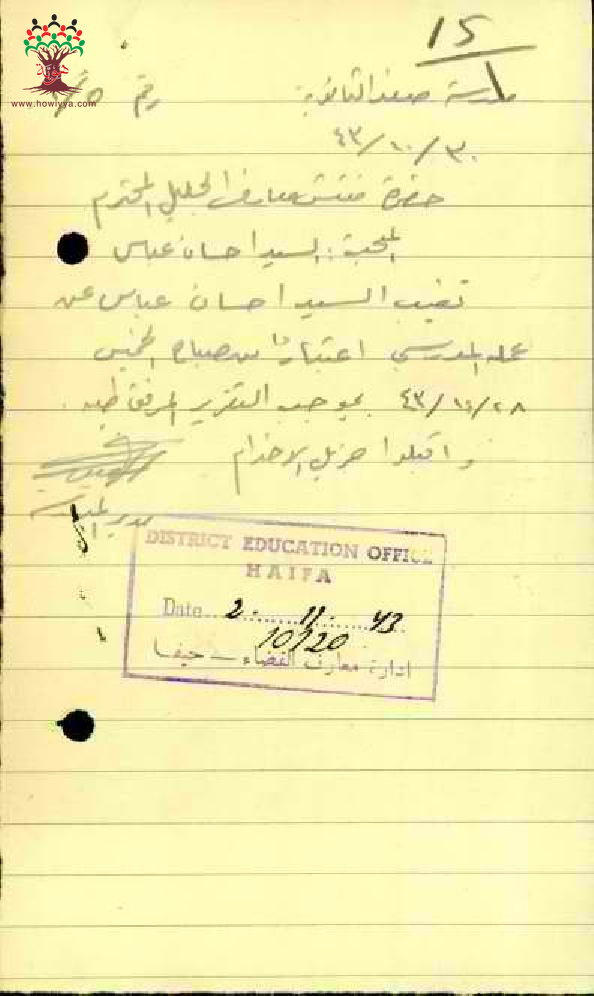 15
www.howiyya.com
مدرسة صفد الثانوية رقم
٤٣/١٠/٣٠
حضرة مفتش معارف الجليل المحترم
السيد احسان عباس
تغيب السيد احسان عباس عن
عمله المدرسي اعتبارا من صباح الخميس
٤٣/١٠/٢٨ بموجب التقرير المرفق طيه .
واقبلوا مزيد الاحترام
مدير المدرسة
DISTRICT EDUCATION OFFICE
HAIFA
Date 2 . 11 . 43
10/20
ادارة معارف القضاء — حيفا